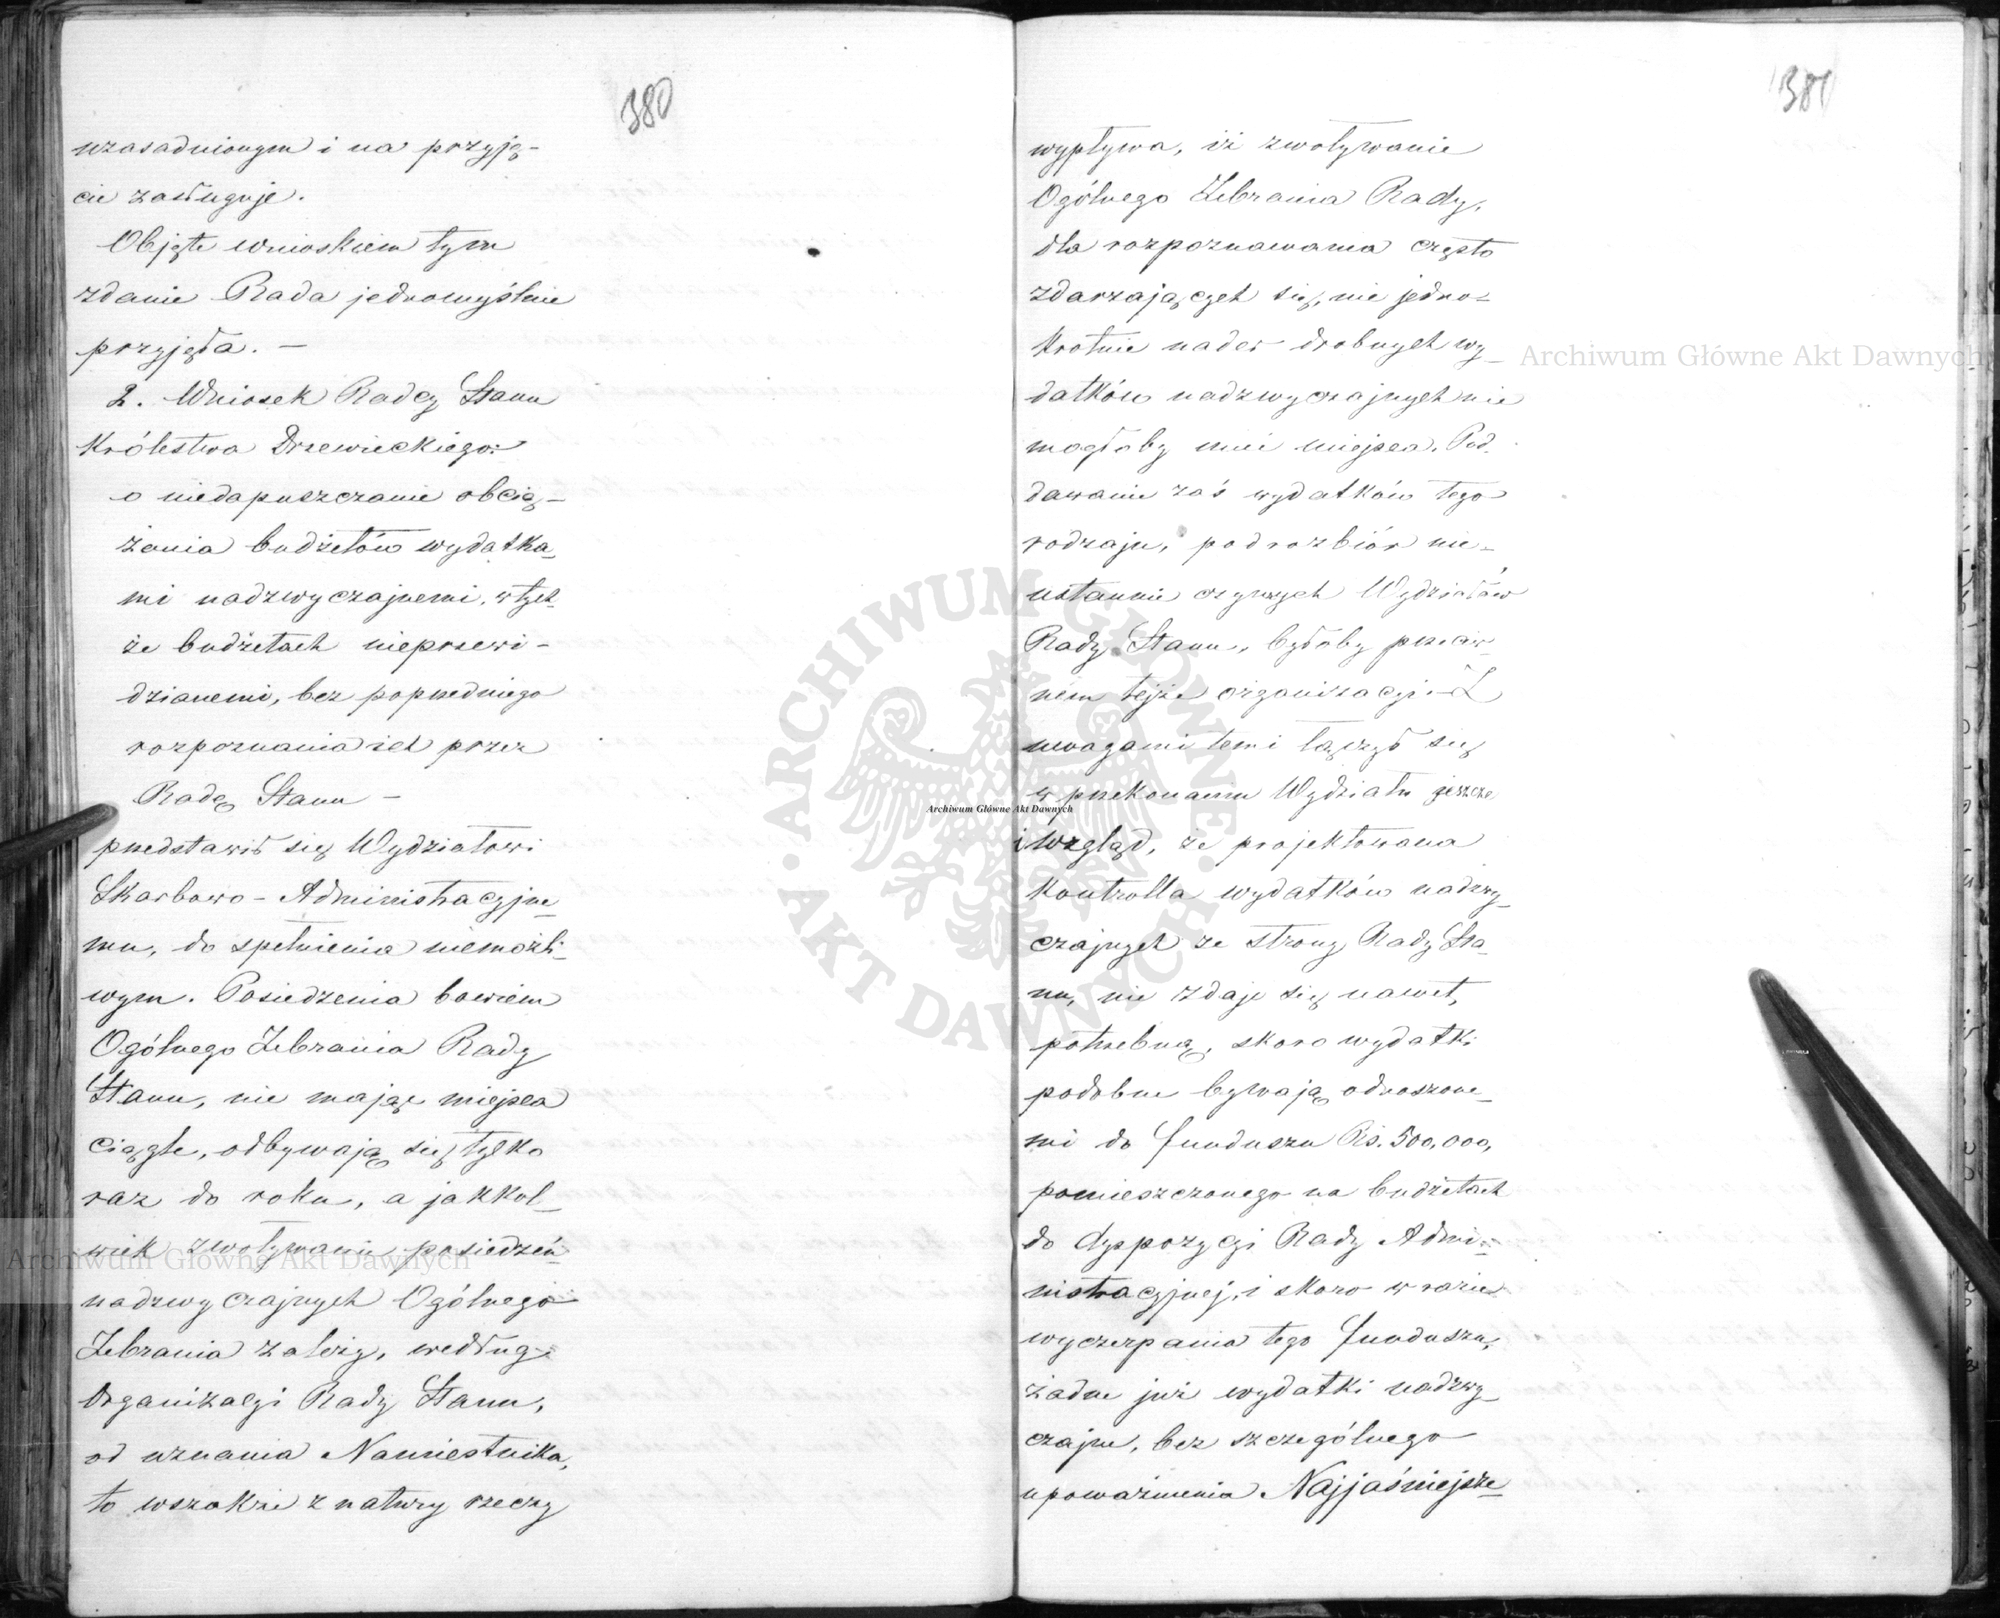 380
uzasadnionym i na przyję-
cie zasługuje.
Objęte wnioskiem tym
zdanie Rada jednomyślnie
przyjęła. —
2. Wniosek Radcy Stanu
Królestwa Drzewieckiego:
o niedopuszczanie obcią-
żania budżetów wydatka-
mi nadzwyczajnemi, w tych-
że budżetach nieprzewi-
dzianemi, bez poprzedniego
rozpoznania ich przez
Radę Stanu —
przedstawił się Wydziałowi
Skarbowo-Administracyjne-
mu, do spełnienia niemożli-
wym. Posiedzenia bowiem
Ogólnego Zebrania Rady
Stanu, nie mając miejsca
ciągle, odbywają się tylko
raz do roku, a jakkol-
wiek zwoływanie posiedzeń
nadzwyczajnych Ogólnego
Zebrania zależy, według
Organizacyi Rady Stanu,
od uznania Namiestnika,
to wszakże z natury rzeczy
381
wypływa, iż zwoływanie
Ogólnego Zebrania Rady,
dla rozpoznawania często
zdarzających się, nie jedno-
krotnie nader drobnych wy-
datków nadzwyczajnych nie
mogłoby mieć miejsca. Pod-
dawanie zaś wydatków tego
rodzaju, pod rozbiór nie-
ustannie czynnych Wydziałów
Rady Stanu, byłoby przeciw-
nem tejże organizacyi. Z
uwagami temi łączył się
w przekonaniu Wydziału jeszcze
i wzgląd, że projektowana
kontrolla wydatków nadzwy-
czajnych ze strony Rady Sta-
nu, nie zdaje się nawet,
potrzebną, skoro wydatki
podobne bywają odnoszone-
mi do funduszu Rs. 500,000,
pomieszczonego na budżetach
do dyspozycyi Rady Admi-
nistracyjnej, i skoro w razie
wyczerpania tego funduszu,
żadne już wydatki nadzwy-
czajne, bez szczególnego
upoważnienia Najjaśniejsze-
Archiwum Główne Akt Dawnych
Archiwum Główne Akt Dawnych
Archiwum Główne Akt Dawnych
ARCHIWUM GŁÓWNE · AKT DAWNYCH ·